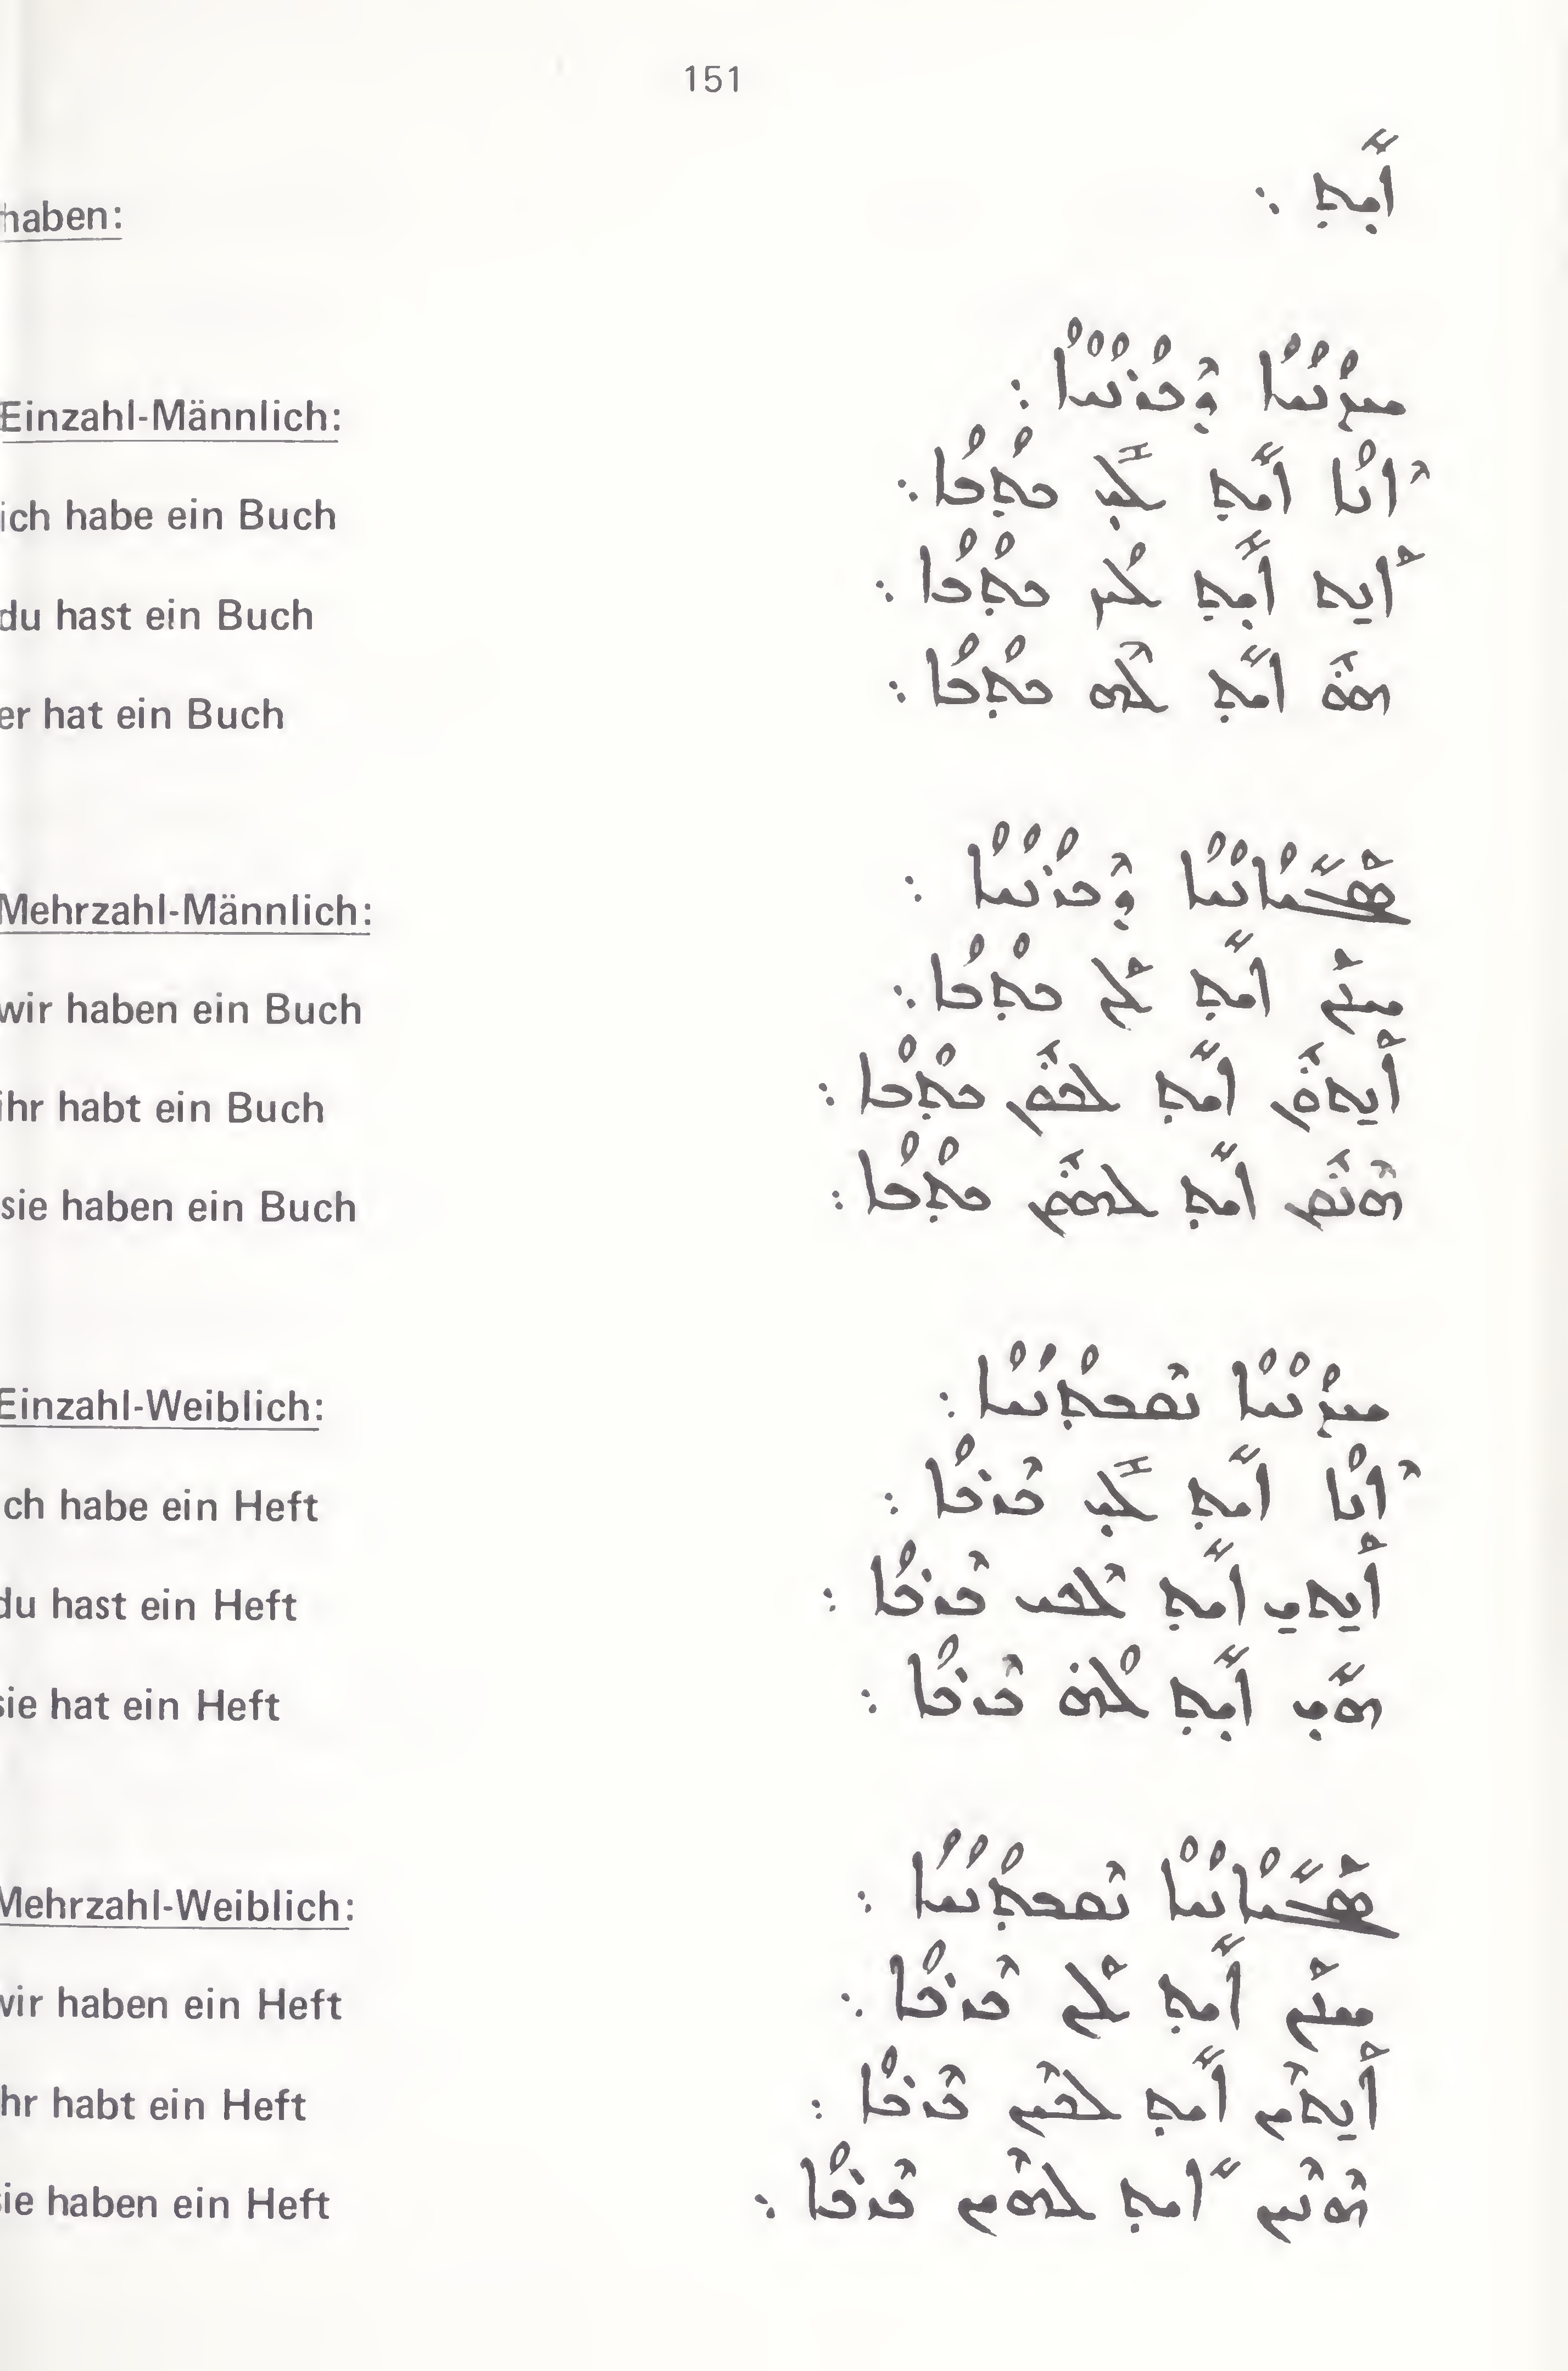 151
haben: ܐܺܝܬ݂ ܆
Einzahl-Männlich: ܚܕܳܢܳܝܳܐ ܕܶܟܪܳܢܳܝܳܐ ܆
ich habe ein Buch ܐܶܢܳܐ ܐܺܝܬ݂ ܠܺܝ ܟܬ݂ܳܒܳܐ ܆
du hast ein Buch ܐܰܢ̱ܬ ܐܺܝܬ݂ ܠܳܟ ܟܬ݂ܳܒܳܐ ܆
er hat ein Buch ܗܽܘ ܐܺܝܬ݂ ܠܶܗ ܟܬ݂ܳܒܳܐ ܆
Mehrzahl-Männlich: ܣܰܓܺܝܐܳܢܳܝܳܐ ܕܶܟܪܳܢܳܝܳܐ ܆
wir haben ein Buch ܚܢܰܢ ܐܺܝܬ݂ ܠܰܢ ܟܬ݂ܳܒܳܐ ܆
ihr habt ein Buch ܐܰܢ̱ܬܽܘܢ ܐܺܝܬ݂ ܠܟܽܘܢ ܟܬ݂ܳܒܳܐ ܆
sie haben ein Buch ܗܶܢܽܘܢ ܐܺܝܬ݂ ܠܗܽܘܢ ܟܬ݂ܳܒܳܐ ܆
Einzahl-Weiblich: ܚܕܳܢܳܝܳܐ ܢܶܩܒܬ݂ܳܢܳܝܳܐ ܆
ch habe ein Heft ܐܶܢܳܐ ܐܺܝܬ݂ ܠܺܝ ܟܶܪܟܳܐ ܆
du hast ein Heft ܐܰܢ̱ܬܝ̱ ܐܺܝܬ݂ ܠܶܟܝ ܟܶܪܟܳܐ ܆
sie hat ein Heft ܗܺܝ ܐܺܝܬ݂ ܠܳܗ̇ ܟܶܪܟܳܐ ܆
Mehrzahl-Weiblich: ܣܰܓܺܝܐܳܢܳܝܳܐ ܢܶܩܒܬ݂ܳܢܳܝܳܐ ܆
wir haben ein Heft ܚܢܰܢ ܐܺܝܬ݂ ܠܰܢ ܟܶܪܟܳܐ ܆
hr habt ein Heft ܐܰܢ̱ܬܶܝܢ ܐܺܝܬ݂ ܠܟܶܝܢ ܟܶܪܟܳܐ ܆
ie haben ein Heft ܗܶܢܶܝܢ ܐܺܝܬ݂ ܠܗܶܝܢ ܟܶܪܟܳܐ ܆